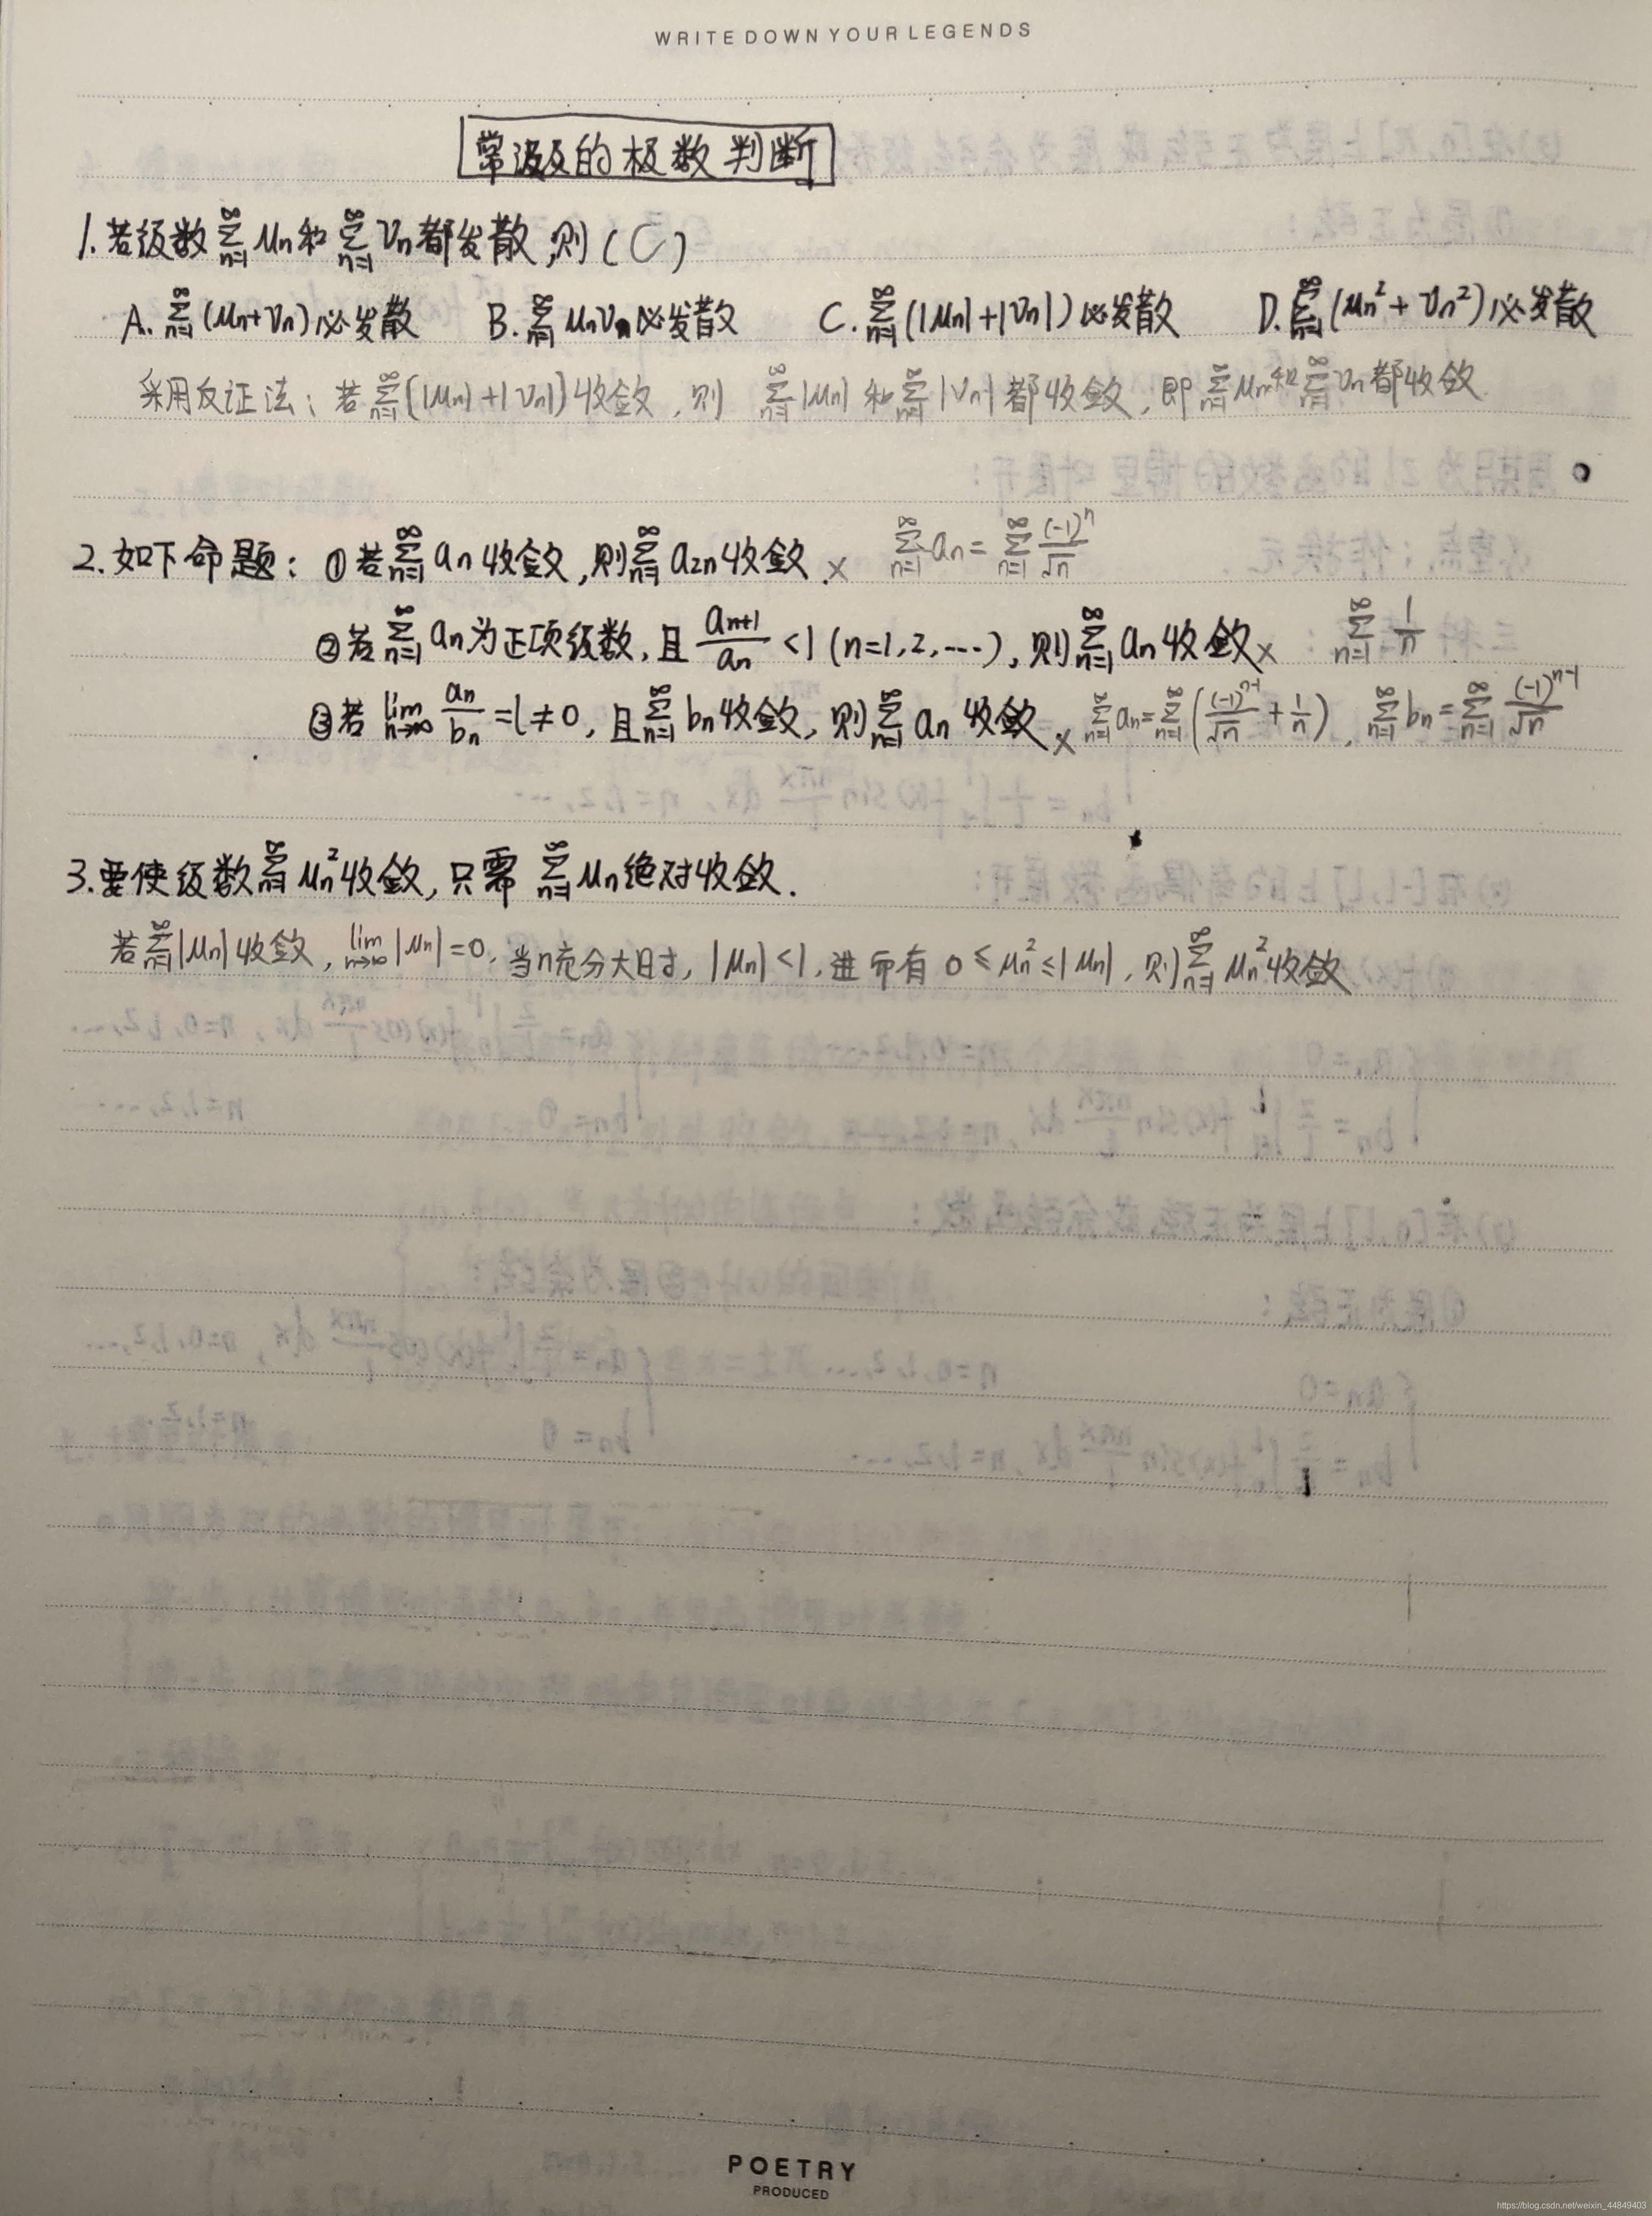 WRITE DOWN YOUR LEGENDS
常级的极数判断
1.若级数∑_{n=1}^{∞} μn和∑_{n=1}^{∞} νn都发散,则(C)
A.∑_{n=1}^{∞}(μn+νn)必发散 B.∑_{n=1}^{∞} μnνn必发散 C.∑_{n=1}^{∞}(|μn|+|νn|)必发散 D.∑_{n=1}^{∞}(μn²+νn²)必发散
采用反证法:若∑_{n=1}^{∞}(|μn|+|νn|)收敛,则 ∑_{n=1}^{∞}|μn|和∑_{n=1}^{∞}|νn|都收敛,即∑_{n=1}^{∞}μn和∑_{n=1}^{∞}νn都收敛.
2.如下命题:①若∑_{n=1}^{∞} an收敛,则∑_{n=1}^{∞} a2n收敛.× ∑_{n=1}^{∞} an=∑_{n=1}^{∞} (-1)^n/√n
②若∑_{n=1}^{∞} an为正项级数,且 an+1/an <1 (n=1,2,…),则∑_{n=1}^{∞} an收敛× ∑_{n=1}^{∞} 1/n
③若 lim_{n→∞} an/bn =l≠0,且∑_{n=1}^{∞} bn收敛,则∑_{n=1}^{∞} an收敛.× ∑_{n=1}^{∞} an=∑_{n=1}^{∞}((-1)^{n-1}/√n + 1/n),∑_{n=1}^{∞} bn=∑_{n=1}^{∞} (-1)^{n-1}/√n
3.要使级数∑_{n=1}^{∞} μn²收敛,只需 ∑_{n=1}^{∞} μn绝对收敛.
若∑_{n=1}^{∞}|μn|收敛,lim_{n→∞}|μn|=0,当n充分大时,|μn|<1,进而有 0≤μn²≤|μn|,则∑_{n=1}^{∞} μn²收敛
POETRY
PRODUCED
https://blog.csdn.net/weixin_44849403